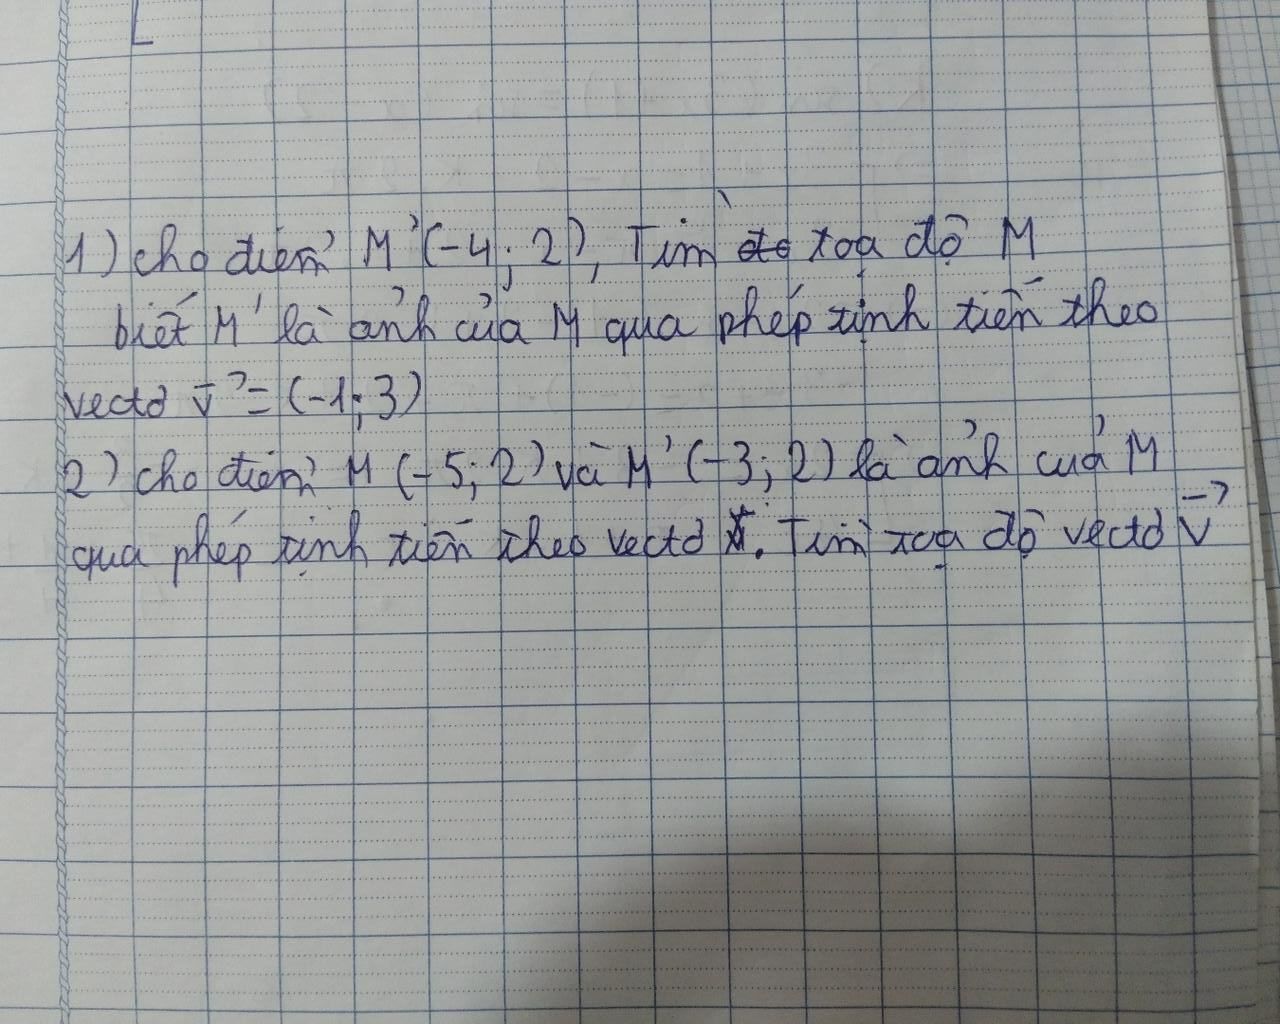 1) cho điểm M'(-4; 2), Tìm toạ độ M
biết M' là ảnh của M qua phép tịnh tiến theo
vectơ v→ = (-1; 3)
2) cho điểm M (-5; 2) và M' (-3; 2) là ảnh của M
qua phép tịnh tiến theo vectơ . Tìm toạ độ vectơ v→